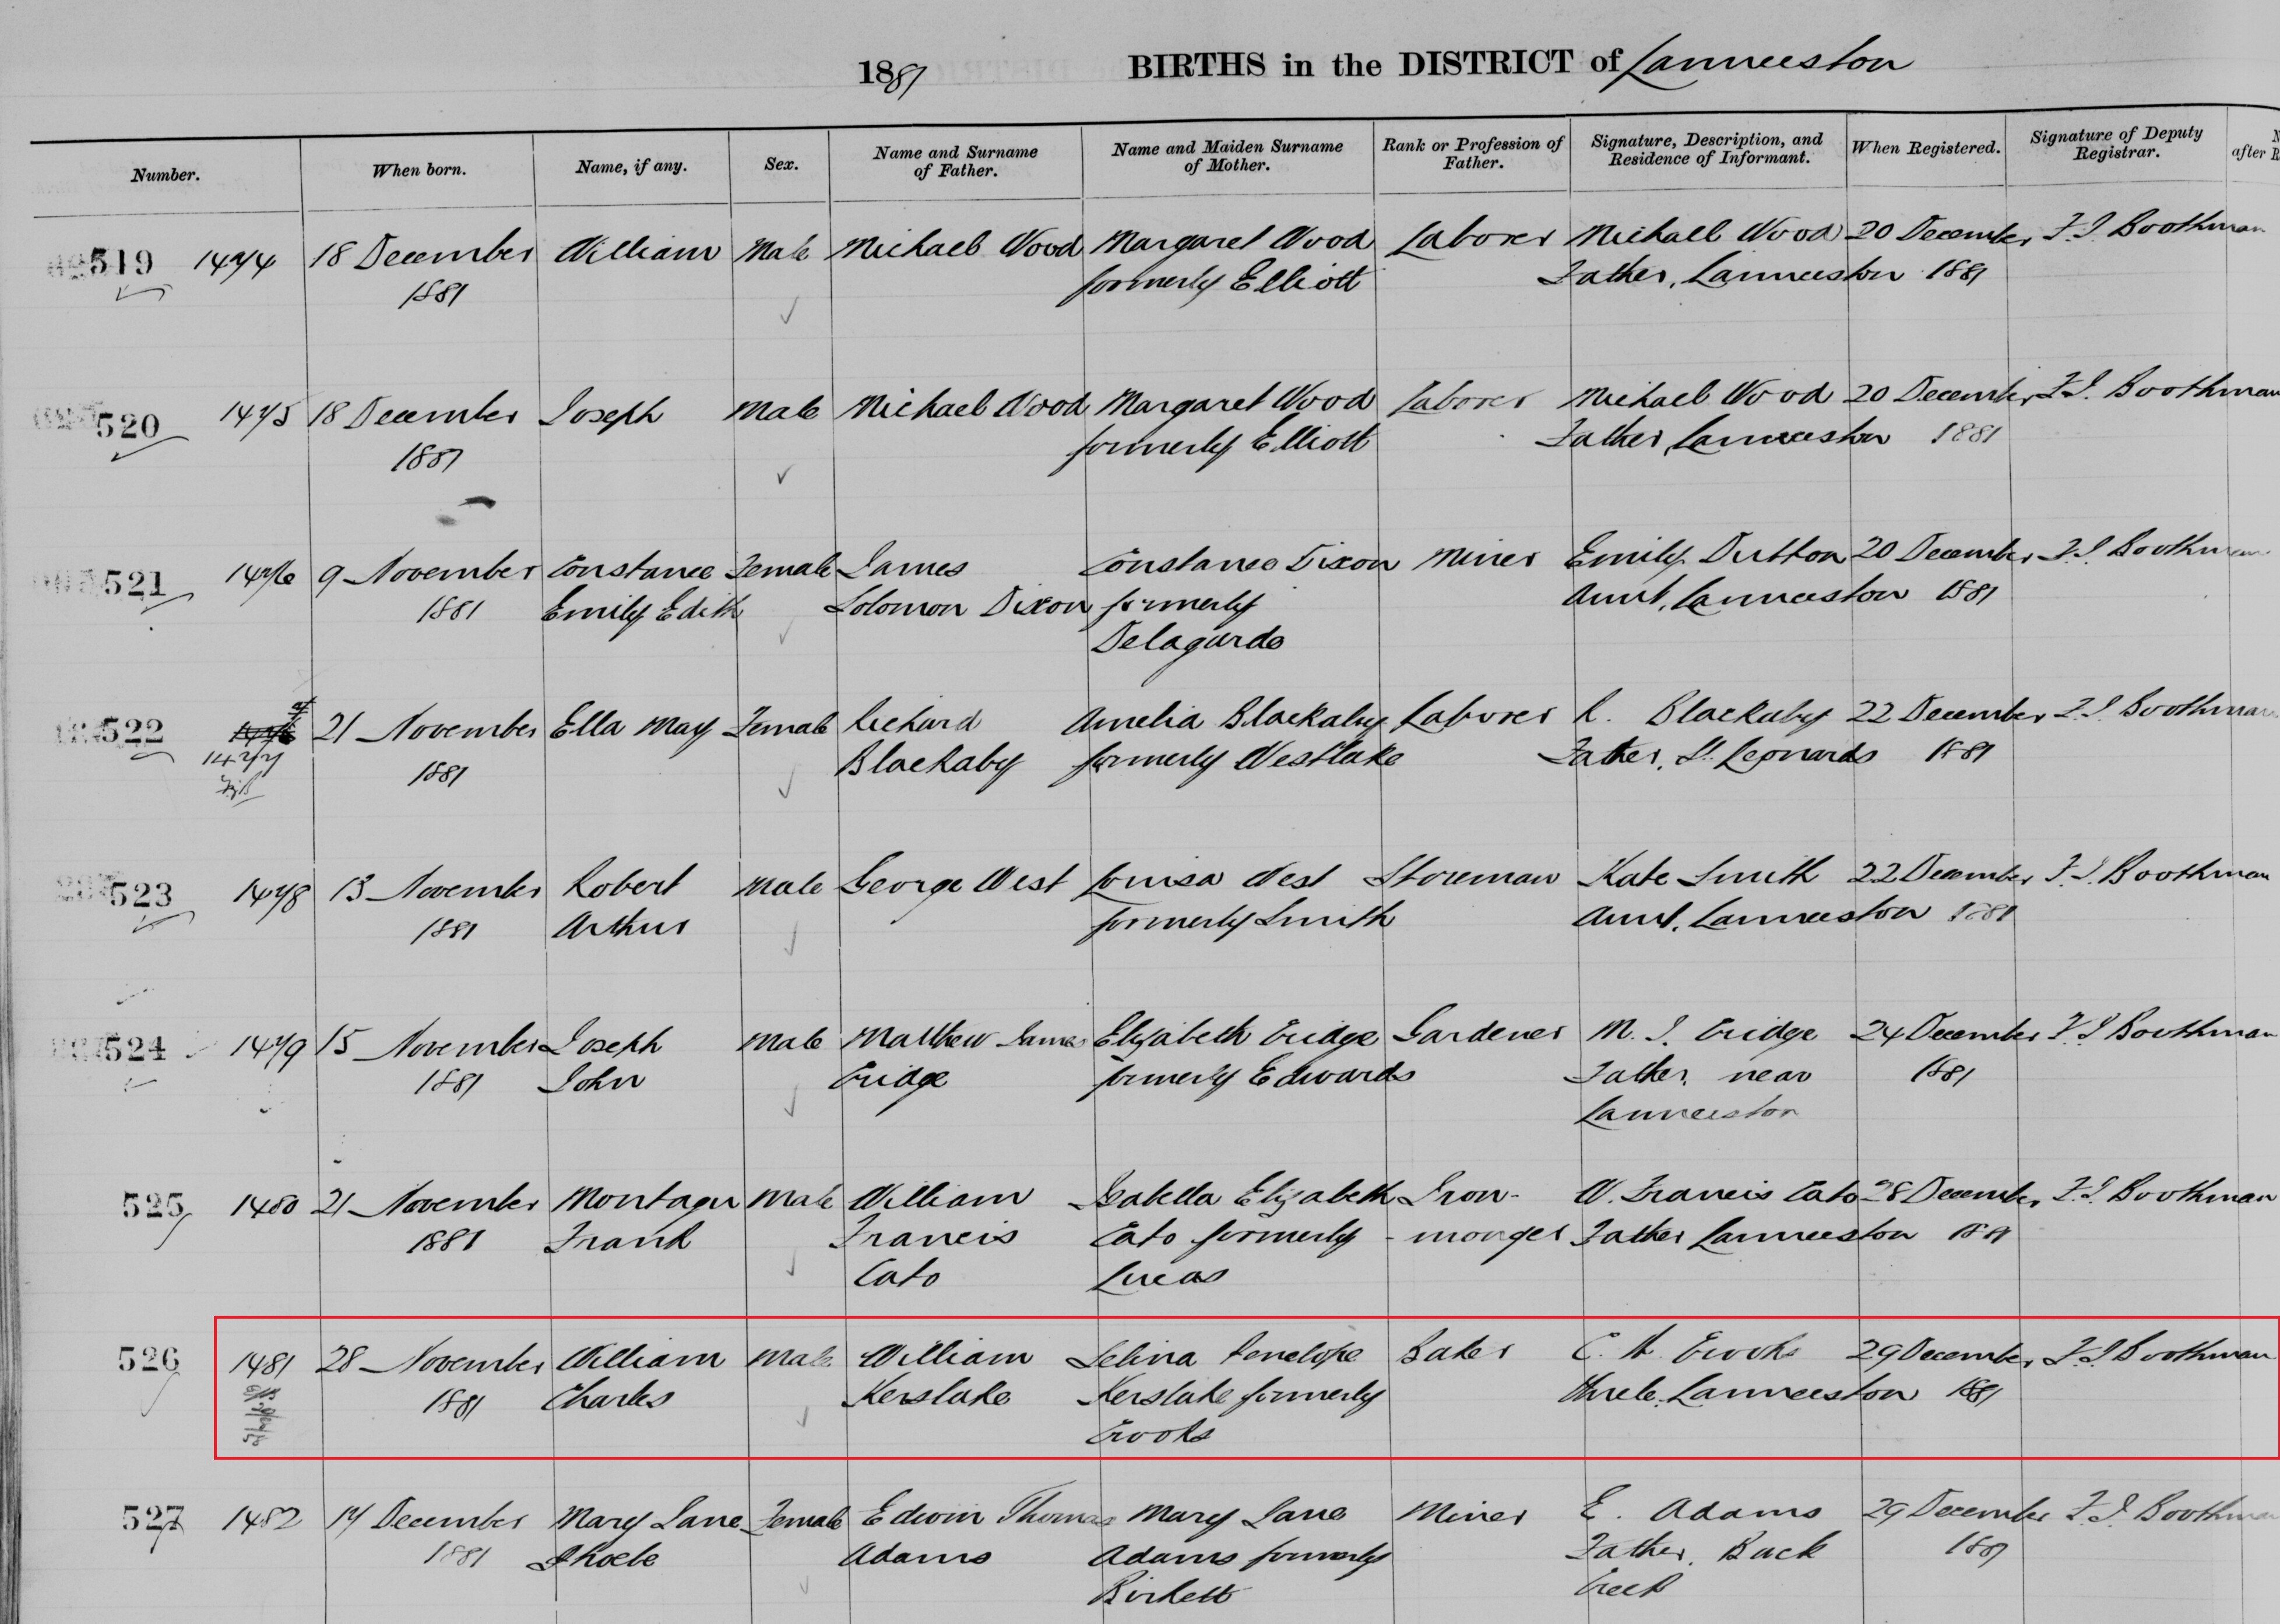 1881 BIRTHS in the DISTRICT of Launceston
Number. When born. Name, if any. Sex. Name and Surname of Father. Name and Maiden Surname of Mother. Rank or Profession of Father. Signature, Description, and Residence of Informant. When Registered. Signature of Deputy Registrar. after
519 1474 18 December William Male Michael Wood Margaret Wood Laborer Michael Wood 20 December F.J. Boothman
1881 formerly Elliott Father, Launceston 1881
520 1475 18 December Joseph Male Michael Wood Margaret Wood Laborer Michael Wood 20 December F.J. Boothman
1881 formerly Elliott Father, Launceston 1881
521 1476 9 November Constance Female James Constance Dixon Miner Emily Dutton 20 December F.J. Boothman
1881 Emily Edith Solomon Dixon formerly Aunt, Launceston 1881
Delagarde
522 1476 21 November Ella May Female Richard Amelia Blackaby Laborer R. Blackaby 22 December F.J. Boothman
1477 1881 Blackaby formerly Westlake Father, St. Leonards 1881
523 1478 13 November Robert Male George West Louisa West Storeman Kate Smith 22 December F.J. Boothman
1881 Arthur formerly Smith Aunt, Launceston 1881
524 1479 15 November Joseph Male Matthew James Elizabeth Gardener M. J. 24 December F.J. Boothman
1881 John formerly Edwards Father, near 1881
Launceston
525 1480 21 November Montagu Male William Isabella Elizabeth Iron- W. Francis Cato 28 December F.J. Boothman
1881 Frank Francis Cato formerly -monger Father Launceston 1881
Cato Lucas
526 1481 28 November William Male William Selina Penelope Baker C. H. Crooks 29 December F.J. Boothman
1881 Charles Kerslake Kerslake formerly Uncle, Launceston 1881
Crooks
527 1482 14 December Mary Jane Female Edwin Thomas Mary Jane Miner E. Adams 29 December F.J. Boothman
1881 Phoebe Adams Adams formerly Father, Back 1881
Birkett Creek